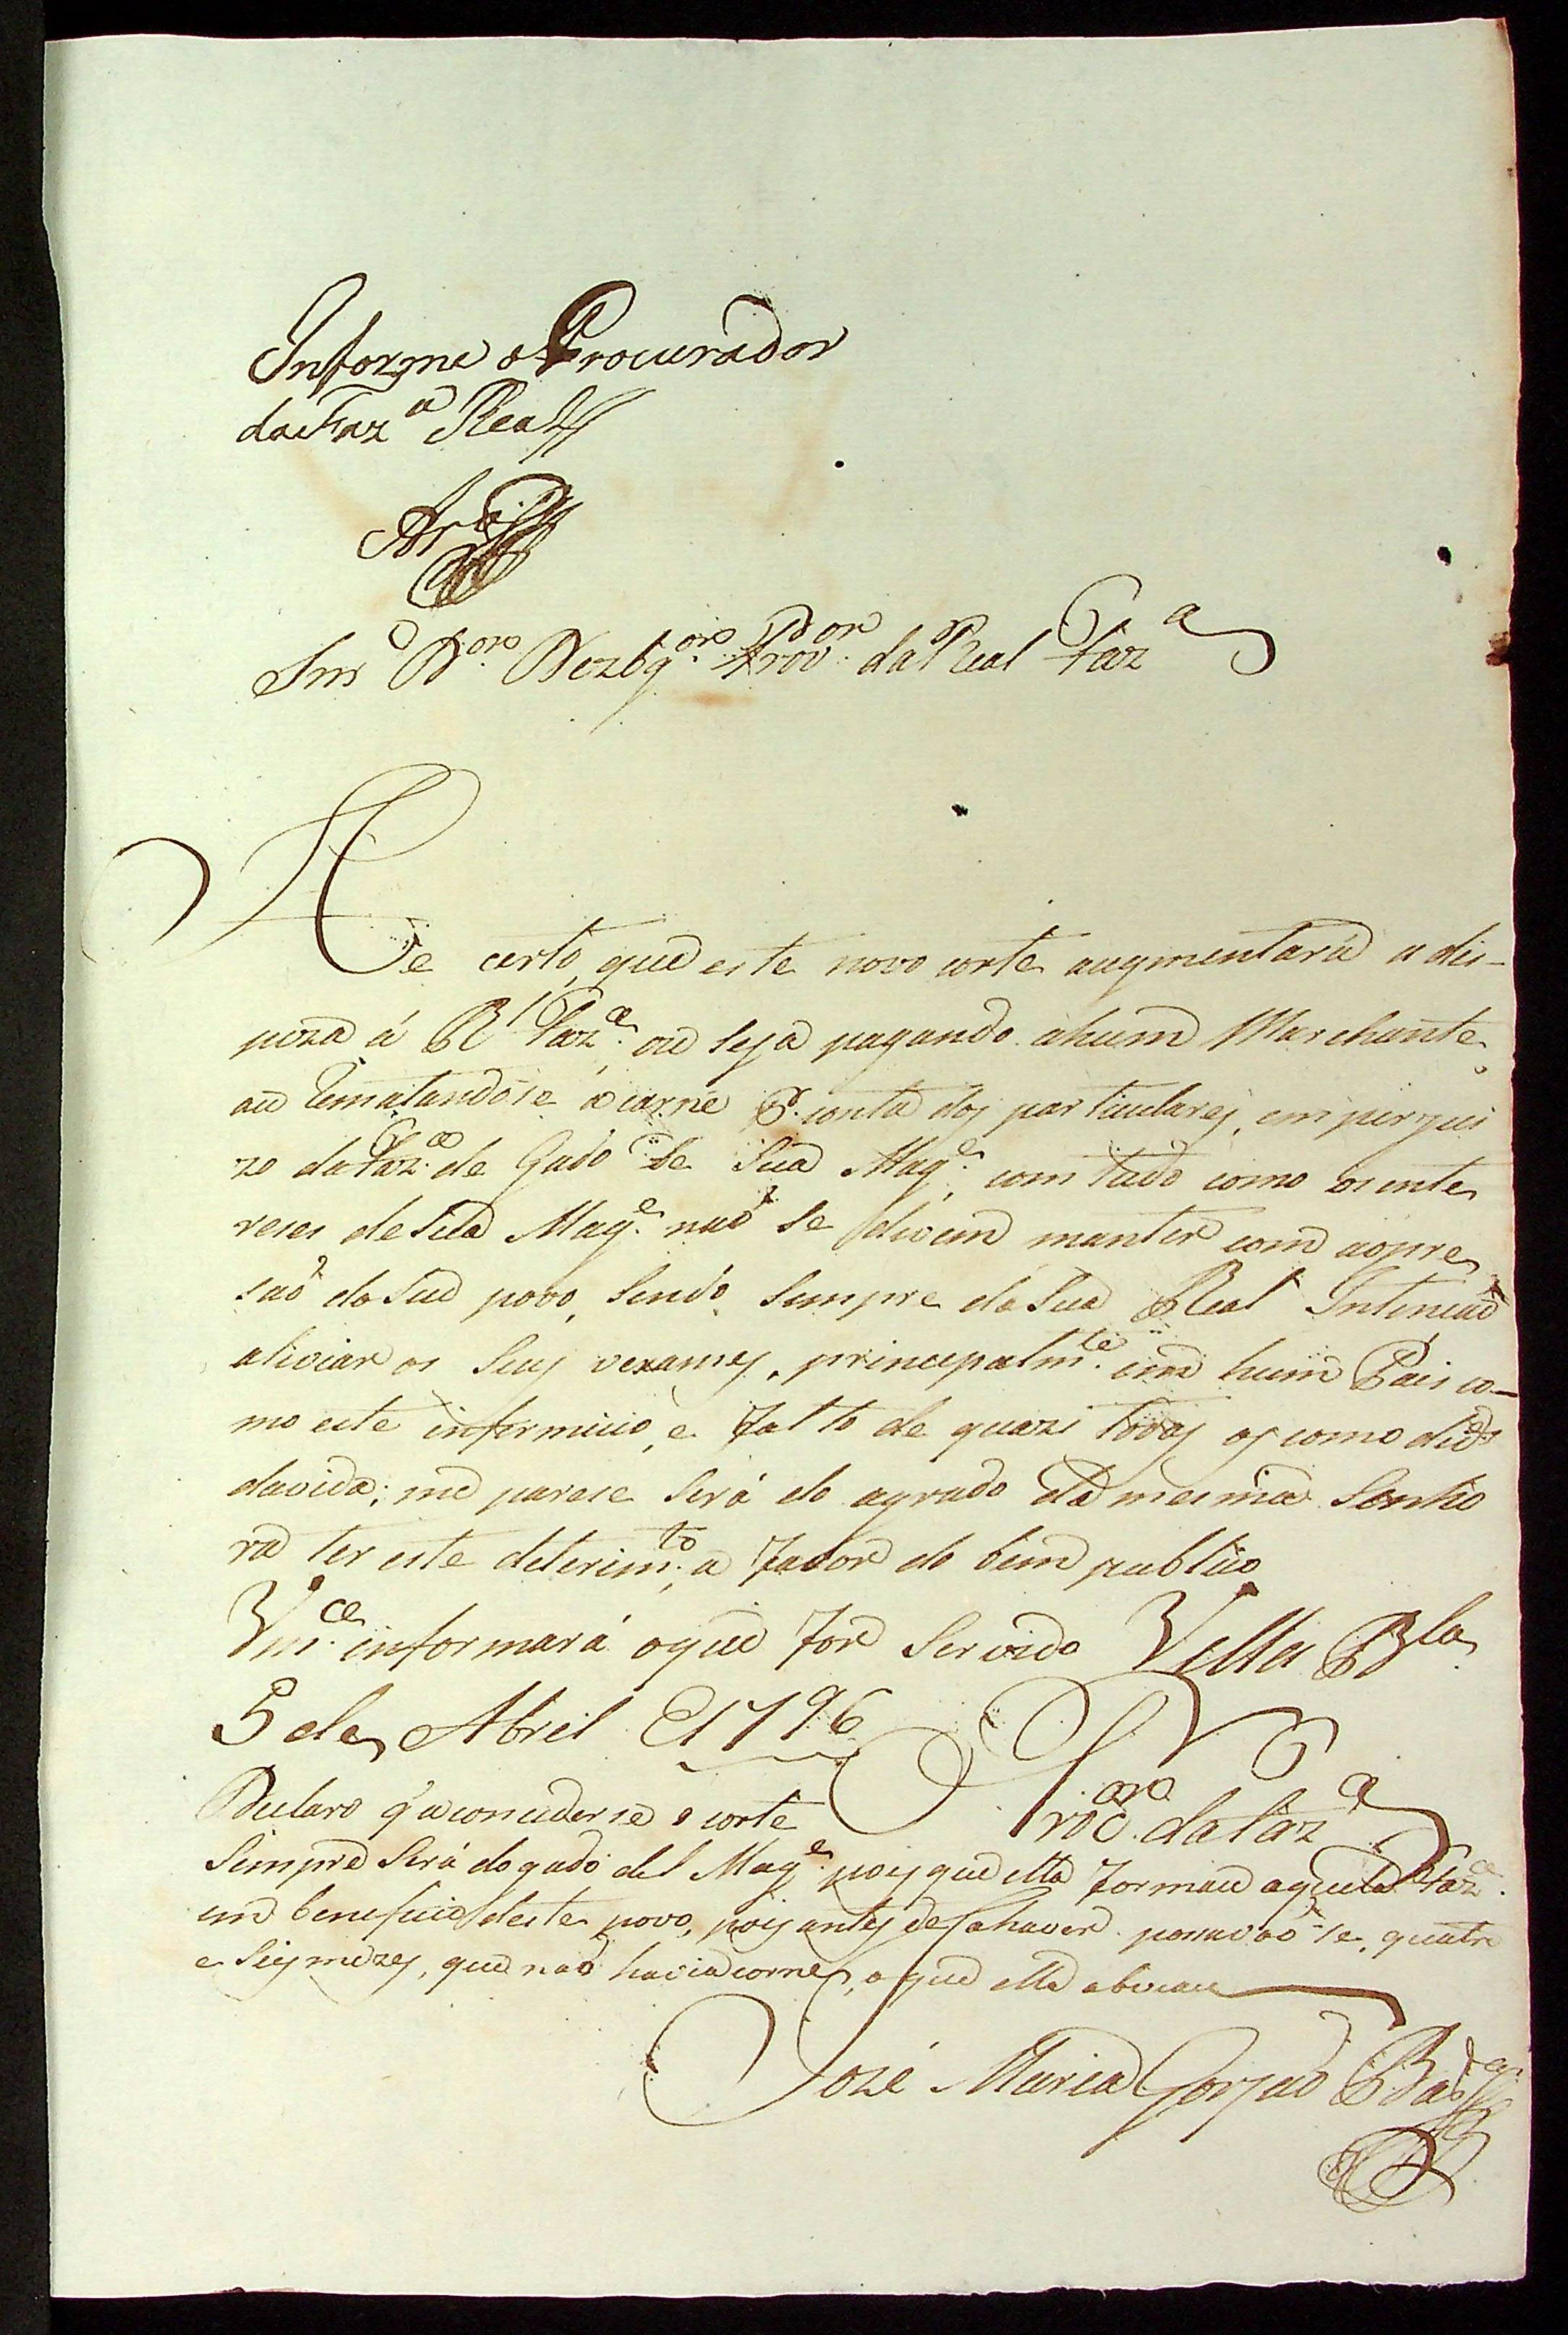 Informe o Procurador
da Faz.a Real
Snr D.or Dezbg.or Prov.or da Real Faz.a
He certo, que este novo corte augmentará a dis-
peza á R.l Faz.a ou seja pagando ahum Marchante,
ou Rematandose a carne P.r conta dos particulares, em perjui
zo da Faz.a de Gado de Sua Mag.e, com tudo como os inte
reses de Sua Mag.e naõ se devem manter com aopre
saõ do Seu povo, sendo sempre da Sua Real Intençaõ
aliviar os Seus vexames, principalm.te em hum Pais co-
mo este infermiço, e falto de quazi todos os comodid.s
davida; me parese será do agrado da mesma Senho
ra ter este deterim.to, a favor do bem publico
Vm.ce informará oque for Servido Villa B.la
5 de Abril de 1796
Proc.or da Faz.a
Declaro q' a concederse o corte
Sempre será dogado del Mag.e, pois que ella formou aquela Faz.a
em beneficio deste povo, pois antes de a haver passavaõ-se, quatro
e seis mezes, que naõ havia carne, o que ella
Jozé Maria Gorjaõ Bas.tos